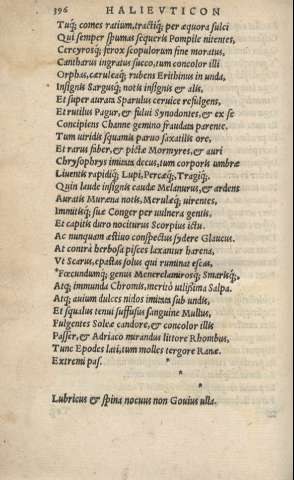 396 HALIEVTICON
Tuq́; comes ratium, tractiq́; per æquora sulci
Qui semper spumas sequeris Pompile nitentes,
Cercyrosq́; ferox scopulorum fine moratus,
Cantharus ingratus succo, tum concolor illi
Orphas, cæruleaq́; rubens Erithinus in unda,
Insignis Sargusq́; notis insignis & alis,
Et super aurata Sparulus ceruice refulgens,
Et rutilus Pagur, & fului Synodontes, & ex se
Concipiens Channe gemino fraudata parente.
Tum uiridis squamis paruo saxatilis ore,
Et rarus fiber, & pictæ Mormyres, & auri
Chrysophrys imitata decus, tum corporis umbræ
Liuentis rapidiq́; Lupi, Percæq́;, Tragiq́;,
Quin laude insignis caudæ Melanurus, & ardens
Auratis Muræna notis, Merulæq́; uirentes,
Immitisq́; suæ Conger per uulnera gentis,
Et capitis duro nociturus Scorpius ictu.
Ac nunquam æstiuo conspectus sydere Glaucus.
At contrà herbosa pisces laxantur harena,
Vt Scarus, epastas solus qui ruminat escas,
*Fœcundumq́; genus Menerelamirosq́; Smarisq́;,
Atq́; immunda Chromis, meritò utilissima Salpa.
Atq́; auium dulces nidos imitata sub undis,
Et squalus tenui suffusus sanguine Mullus,
Fulgentes Soleæ candore, & concolor illis
Passer, & Adriaco mirandus littore Rhombus,
Tunc Epodes lati, tum molles tergore Ranæ.
Extremi pas. *
*
Lubricus & spina nocuus non Gouius ulla.